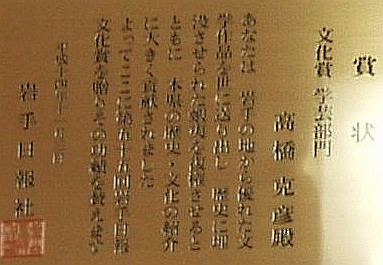 賞状
文化賞 学芸部門
高橋克彦殿
あなたは 岩手の地から優れた文
学作品を世に送り出し 歴史に埋
没させられた蝦夷を復権させると
ともに 本県の歴史・文化の紹介
に大きく貢献されました
よってここに第五十五回岩手日報
文化賞を贈りその功績を讃えます
平成十四年十一月三日
岩手日報社